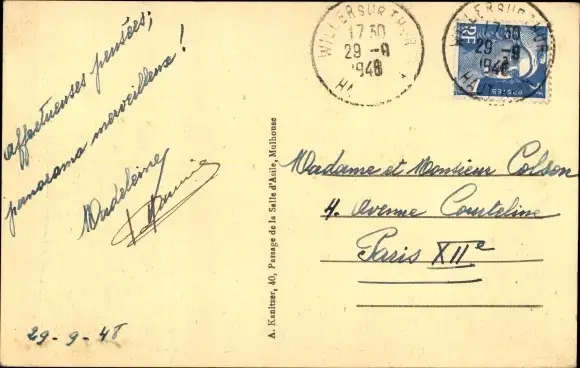 affectueuses pensées;
panorama merveilleux!
Madeleine
29-9-48
A. Kanitzer, 40, Passage de la Salle d'Asile, Mulhouse
WILLER SUR THUR
17 30
29 -9
1948
WILLER SUR THUR
17 30
29 -9
1948
HAUT
RF
POSTES
Madame et Monsieur Colson
4. Avenue Courteline
Paris XIIe